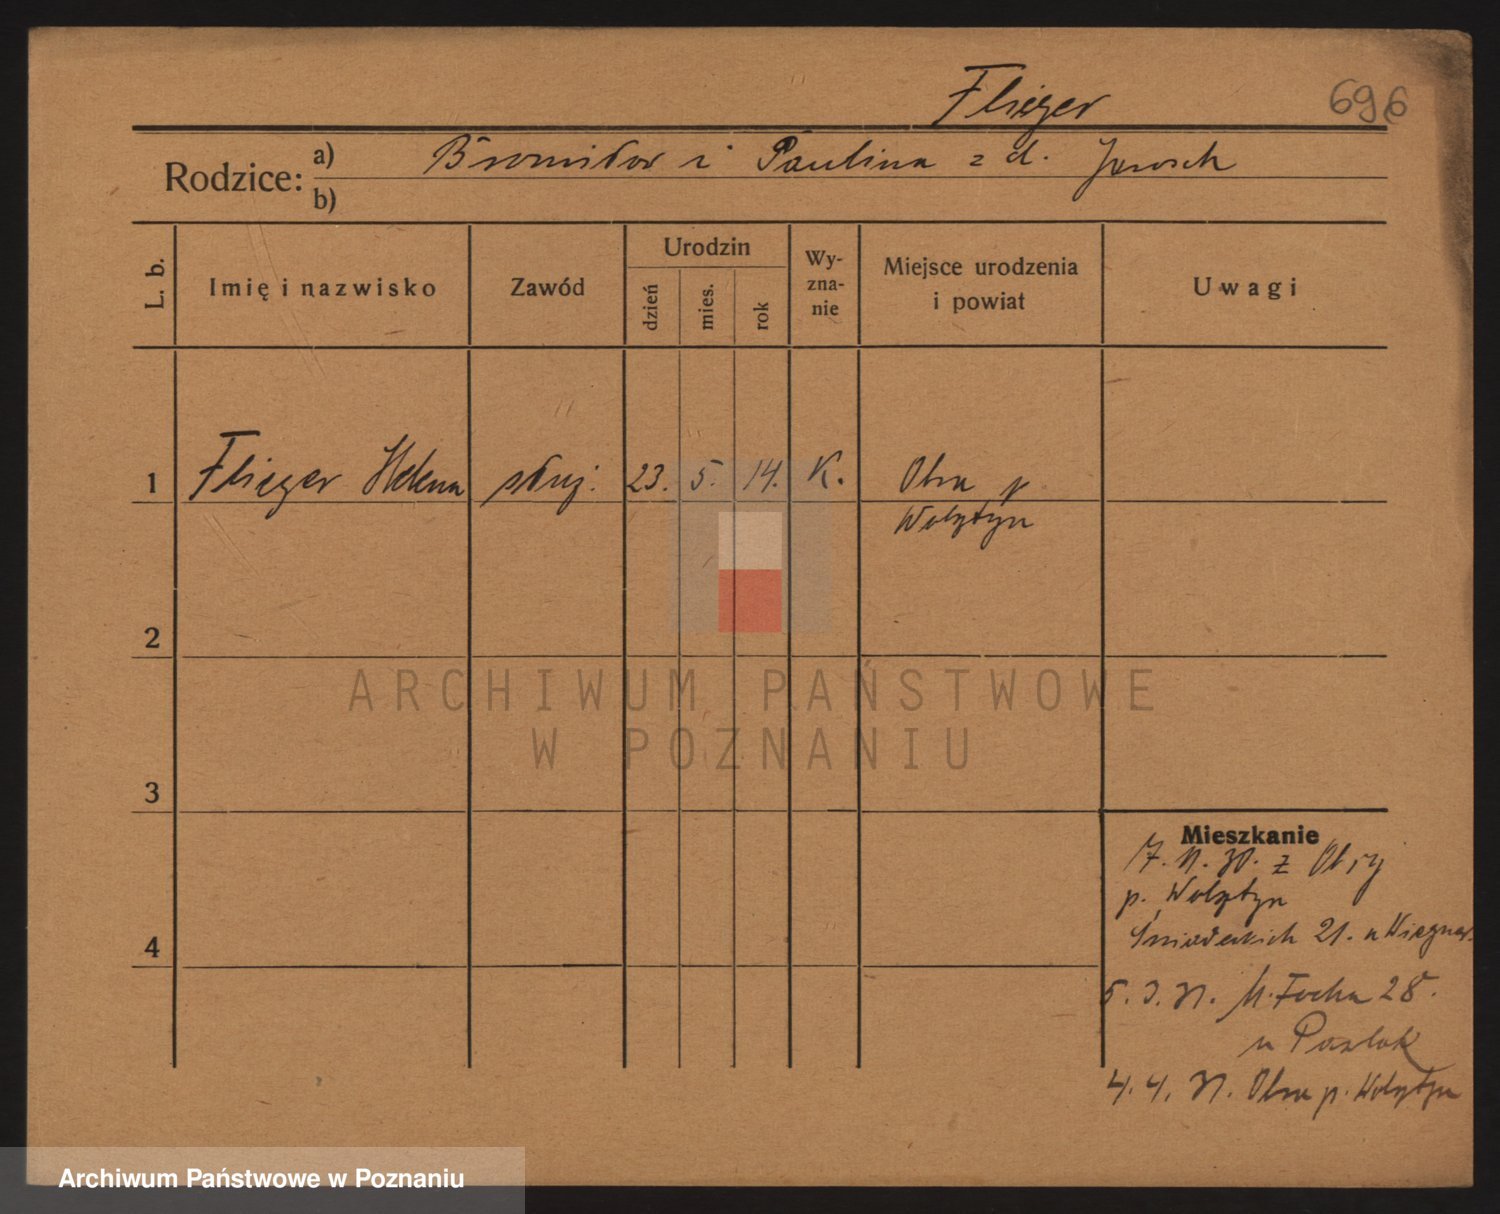 Flieger
696
Rodzice:
a) Bronisław i Paulina z d. Jarosch
b)
L. b.
Imię i nazwisko
Zawód
Urodzin
dzień
mies.
rok
Wy-
zna-
nie
Miejsce urodzenia
i powiat
Uwagi
1 Flieger Helena służ. 23. 5. 14. K. Obra p
Wolsztyn
2
3
4
Mieszkanie
7. 11. 30. z Obry
p. Wolsztyn
Śniadeckich 21. u
5. 3. 31. M. Focha 28.
u
4. 4. 31. Obra p. Wolsztyn
ARCHIWUM PAŃSTWOWE
W POZNANIU
Archiwum Państwowe w Poznaniu